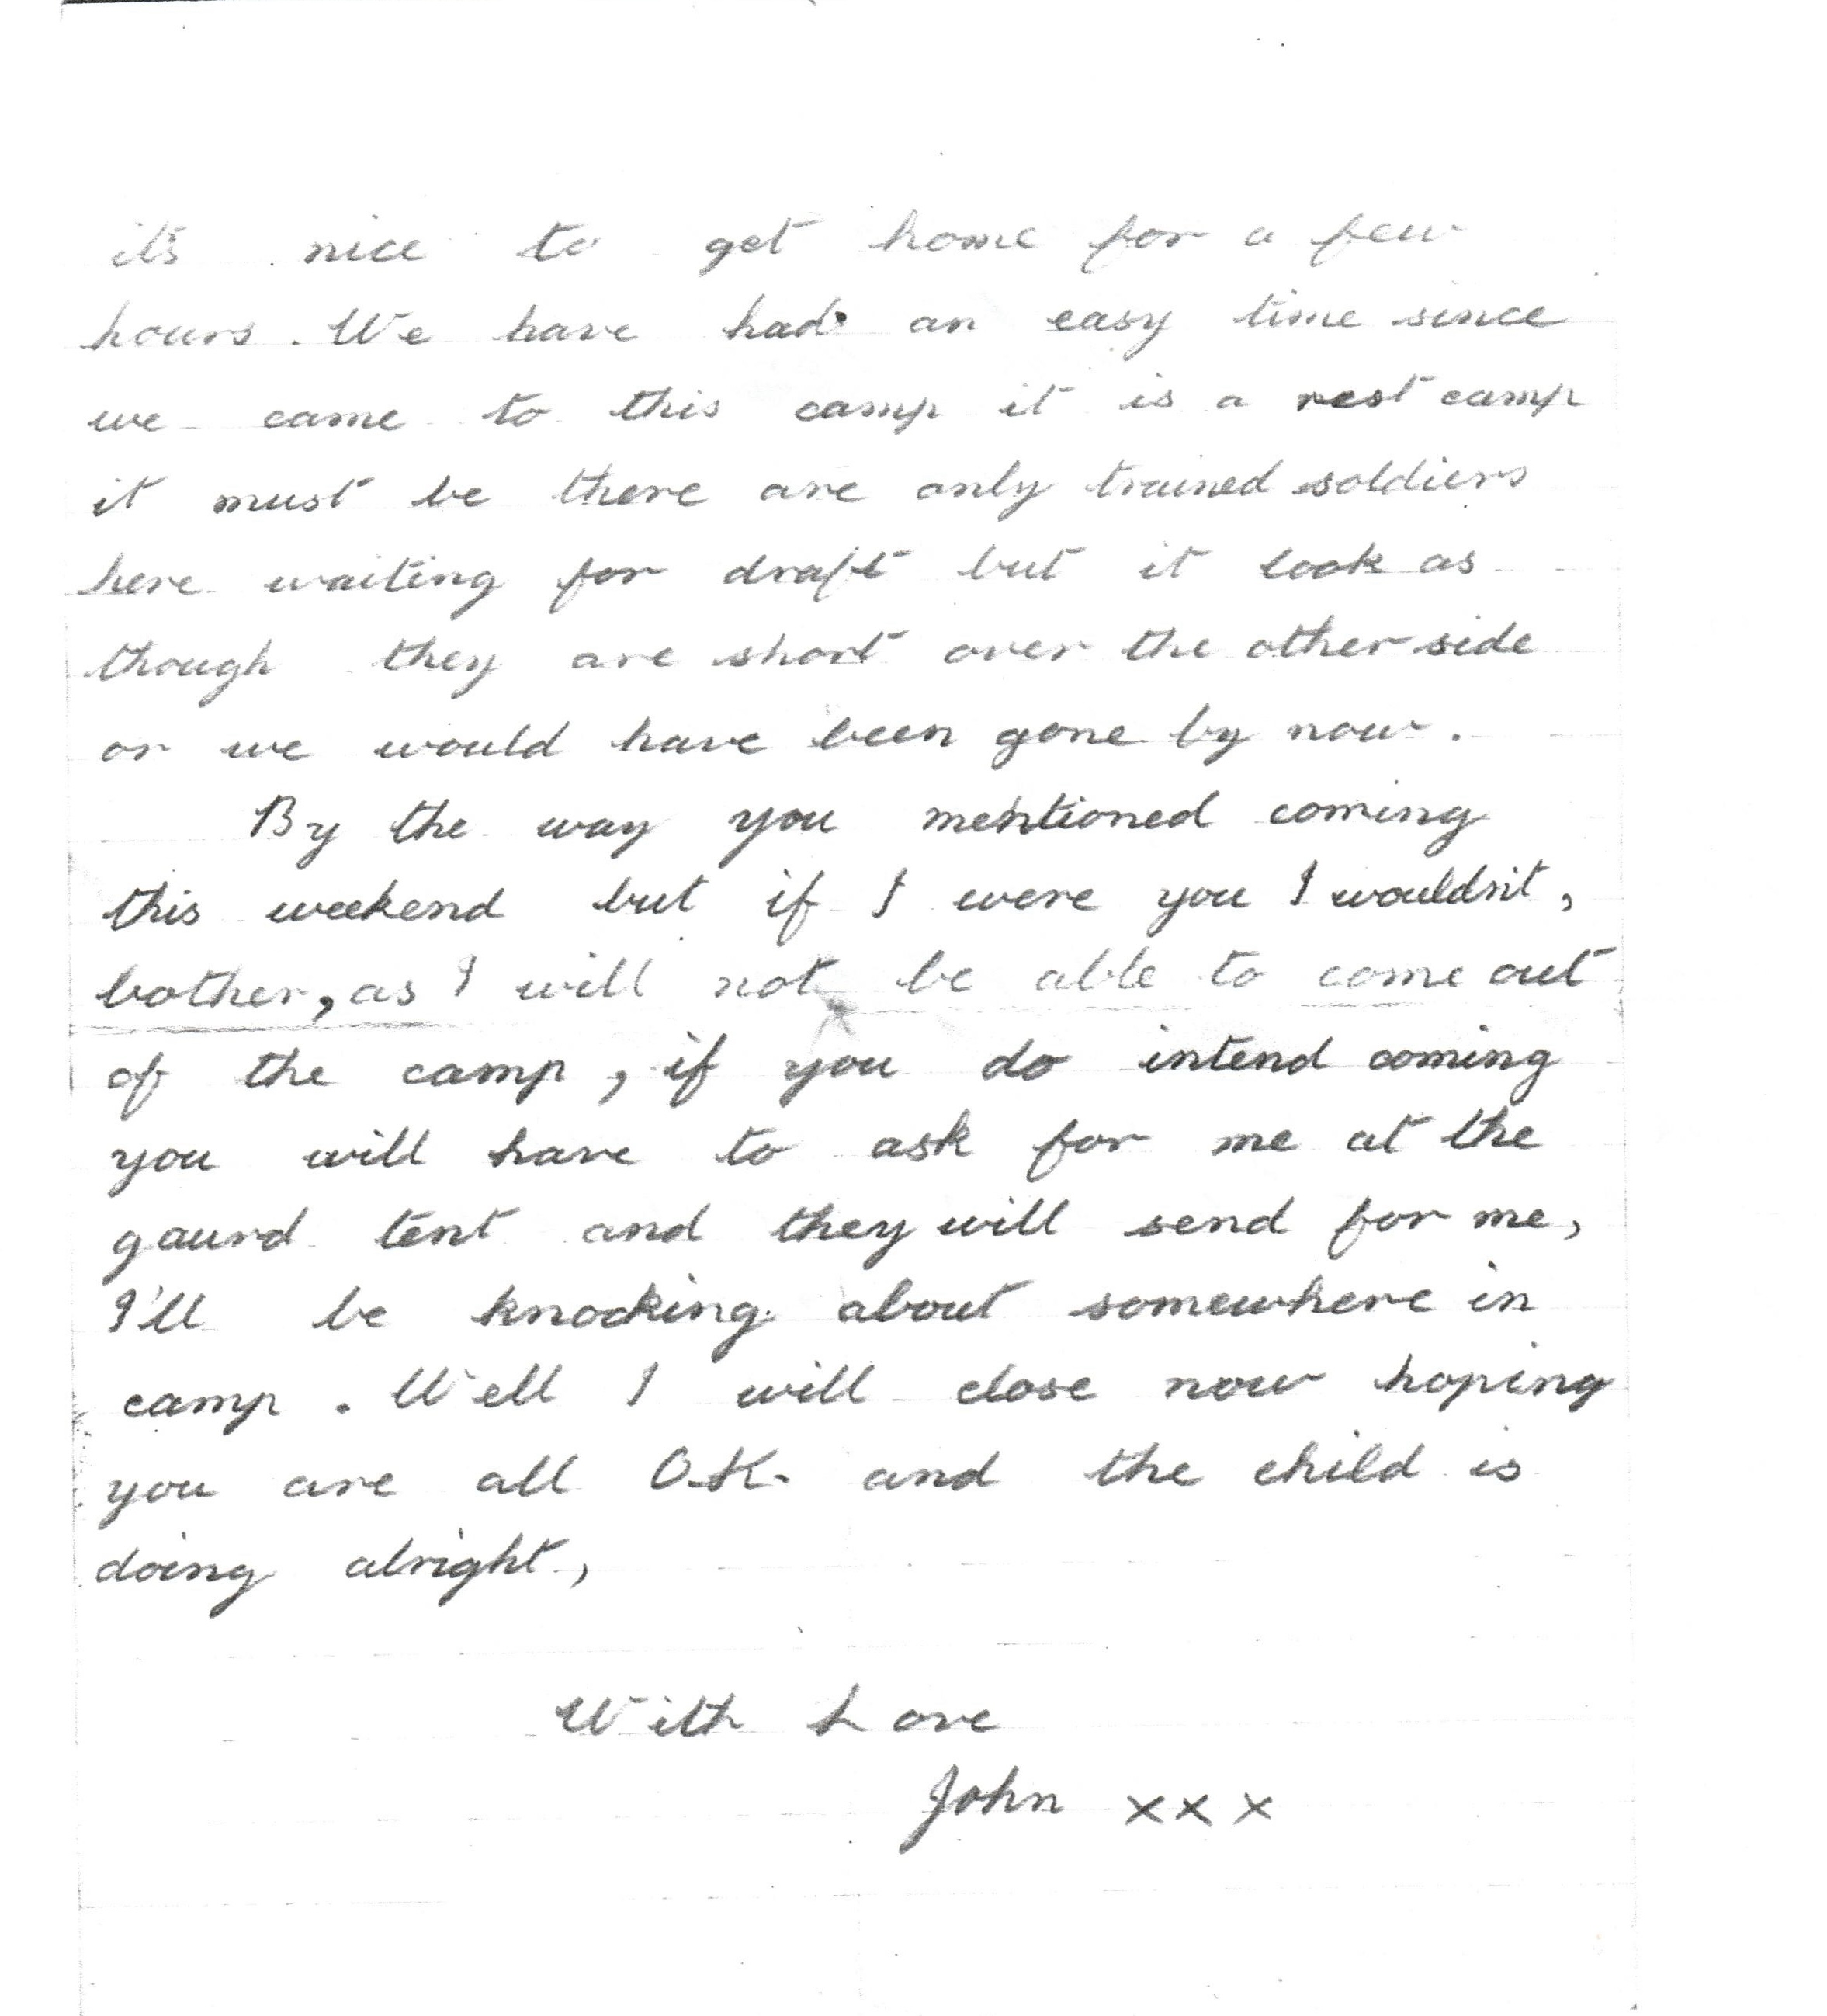 its nice to get home for a few
hours. We have had an easy time since
we came to this camp it is a rest camp
it must be there are only trained soldiers
here waiting for draft but it look as
though they are short over the other side
or we would have been gone by now.
By the way you mentioned coming
this weekend but if I were you I wouldn't,
bother, as I will not be able to come out
of the camp, if you do intend coming
you will have to ask for me at the
gaurd tent and they will send for me,
I'll be knocking about somewhere in
camp. Well I will close now hoping
you are all O.K. and the child is
doing alright,
With Love
John xxx